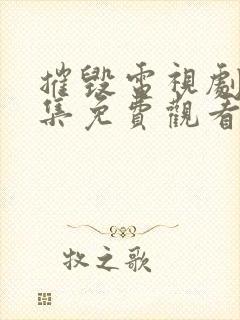 摧毀電視劇
集免費觀看
牧之歌